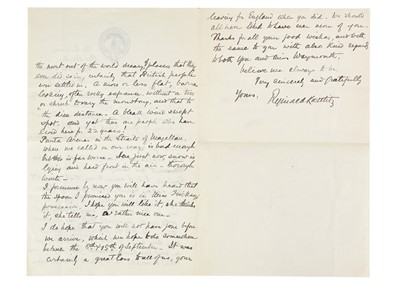 the most out of the world dreary places that they
ever did see, certainly that British people
ever settled in. A more or less flat, barren
looking, often rocky expanse, without a tree
or shrub to vary the monotony, and that to
the dire sentence. A bleak wind swept
spot, and yet there are people who have
lived here for 22 years!
Punta Arenas in the Straits of Magellan,
where we called on our way, is bad enough
but this is far worse. Here just now, snow is
lying and hard frost in the air — thorough
winter.
I presume by now you will have heard that
the spoon I promised you is in Miss
possession. I hope you will like it, she thinks
it, she tells me, a rather nice one.
I do hope that you will not have gone before
we arrive, which we hope to do somewhere
between the 8th & 15th of September. It was
certainly a great loss to all of us, your
leaving for England when you did. We should
all have liked to have seen more of you.
Thanks for all your good wishes, and with
the same to you with also kind regards
to both you and Miss Weymouth,
Believe me always to be
Very sincerely and gratefully
Yours,
Reginald Koettlitz